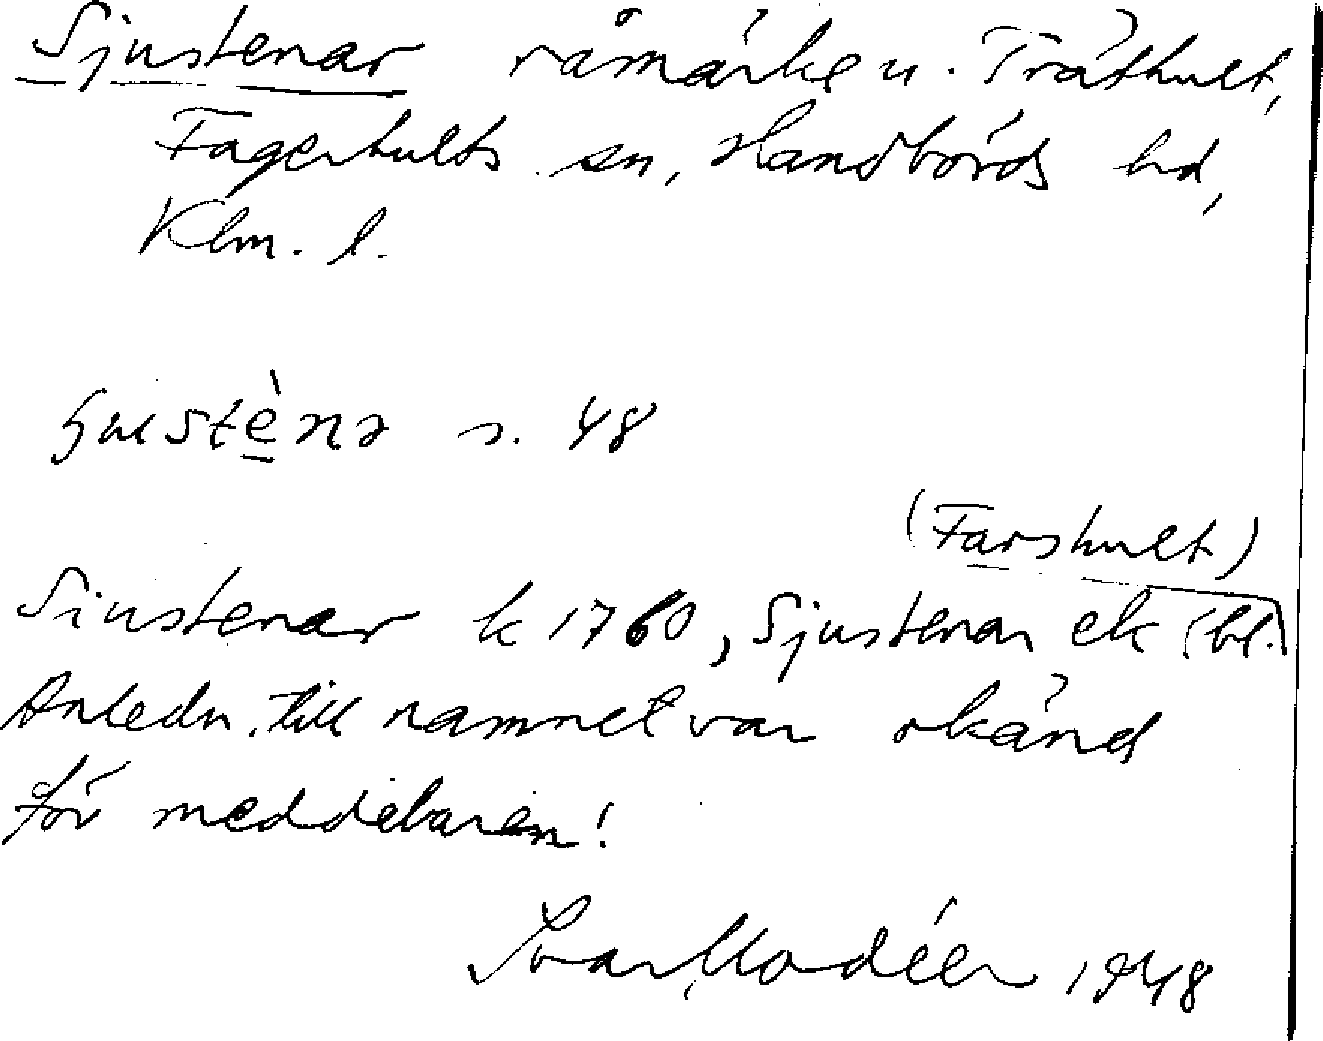 Sjustenar råmärke u. Tråthult,
Fagerhults sn, Handbörds hd,
Klm. l.
s. 48
(Farshult)
Siustenar k 1760, Sjustenar ek (bl.)
Anledn. till namnet var okänd
för meddelaren!
Ivar Modéer 1948